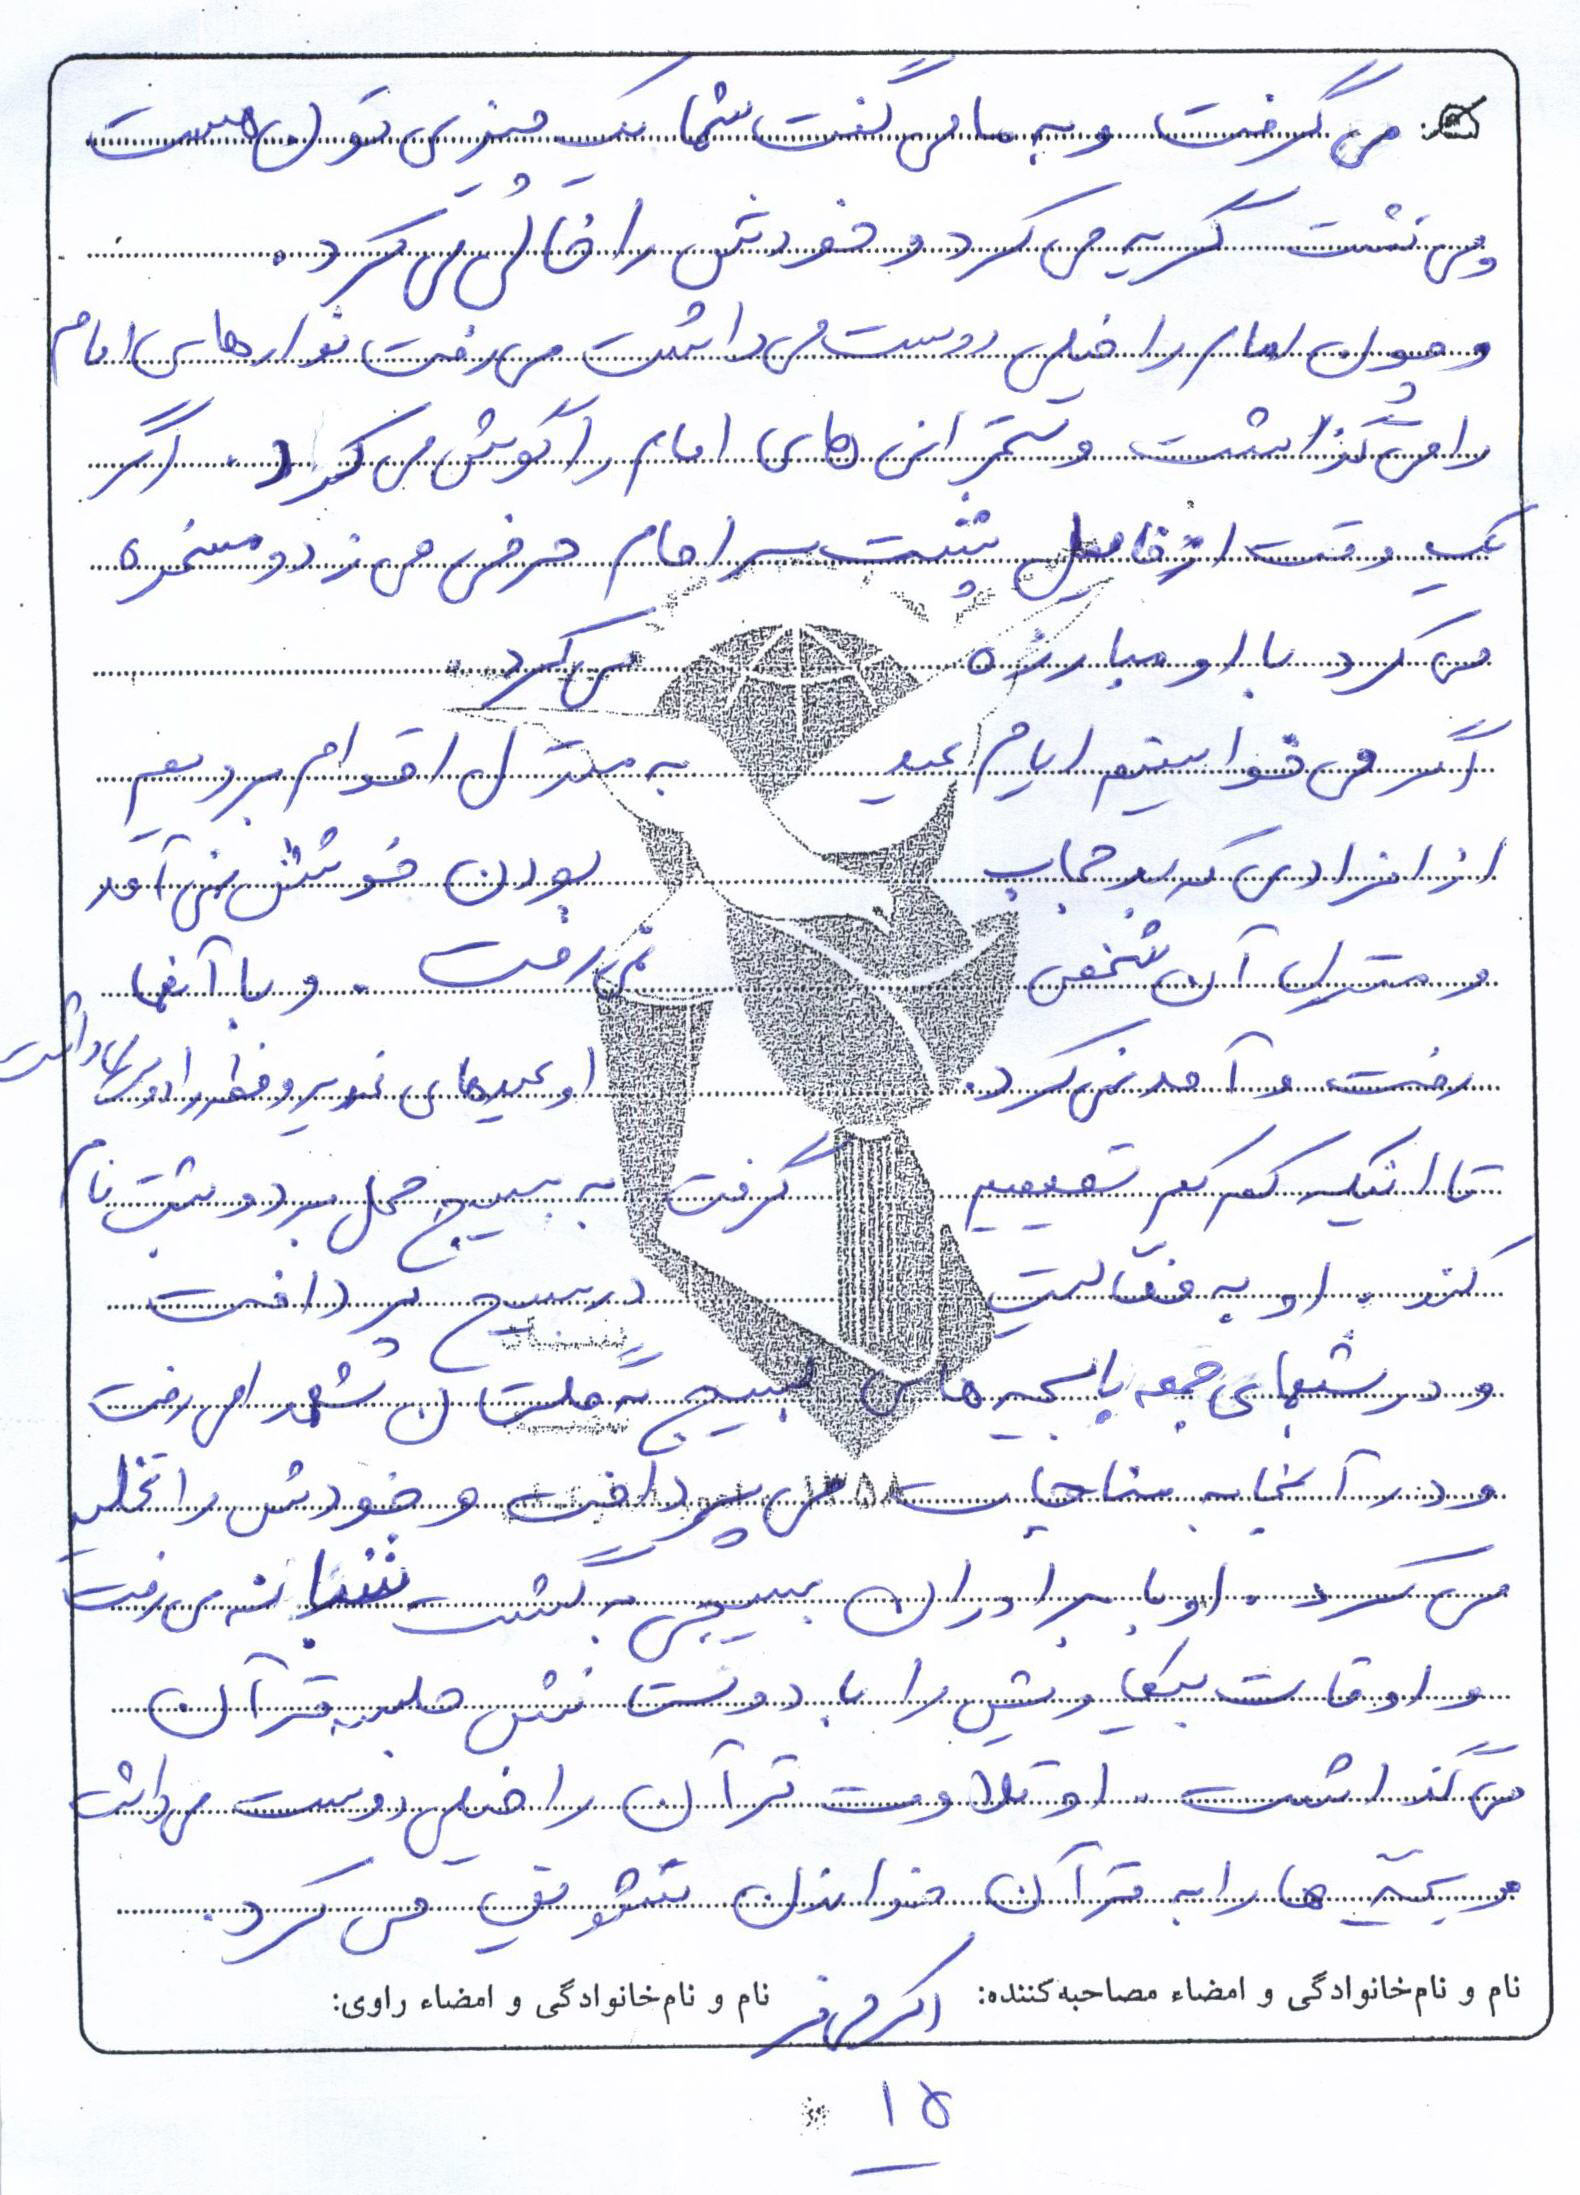 می گرفت و به ما می گفت شما یک چیزی تون هست
می نشت گریه می کرد و خودش را خالی می کرد.
و چون امام را خیلی دوست می داشت می رفت نوارهای امام
را می گذاشت و سخنرانی های امام را گوش می کرد. اگر
یک وقت از فامیل پشت سر امام حرفی می زد و مسخره
می کرد با او مبارزه می کرد.
اگر می خواستیم ایام عید به منزل اقوام برویم
از افرادی که بد حجاب بودن خوشش نمی آمد
و منزل آن شخص نمی رفت. و با آنها
رفت و آمد نمی کرد. او عیدهای غدیر و فطر را دوست داشت
تا اینکه کم کم تصمیم گرفت به بسیج محل برد و ثبت نام
کند. او به فعّالیت در بسیج پرداخت
و در شبهای جمعه با بچه های بسیج به گلستان شهدا می رفت
و در آنجا به مناجات می پرداخت و خودش را تخلیه
می کرد. او با برادران بسیجی به گشت شبانه می رفت
و اوقات بیکاریش را با دوستانش جلسه قرآن
می گذاشت. او تلاوت قرآن را خیلی دوست می داشت
و بچّه ها را به قرآن خواندن تشویق می کرد.
نام و نام‌خانوادگی و امضاء مصاحبه‌کننده: نام و نام‌خانوادگی و امضاء راوی:
۱۵